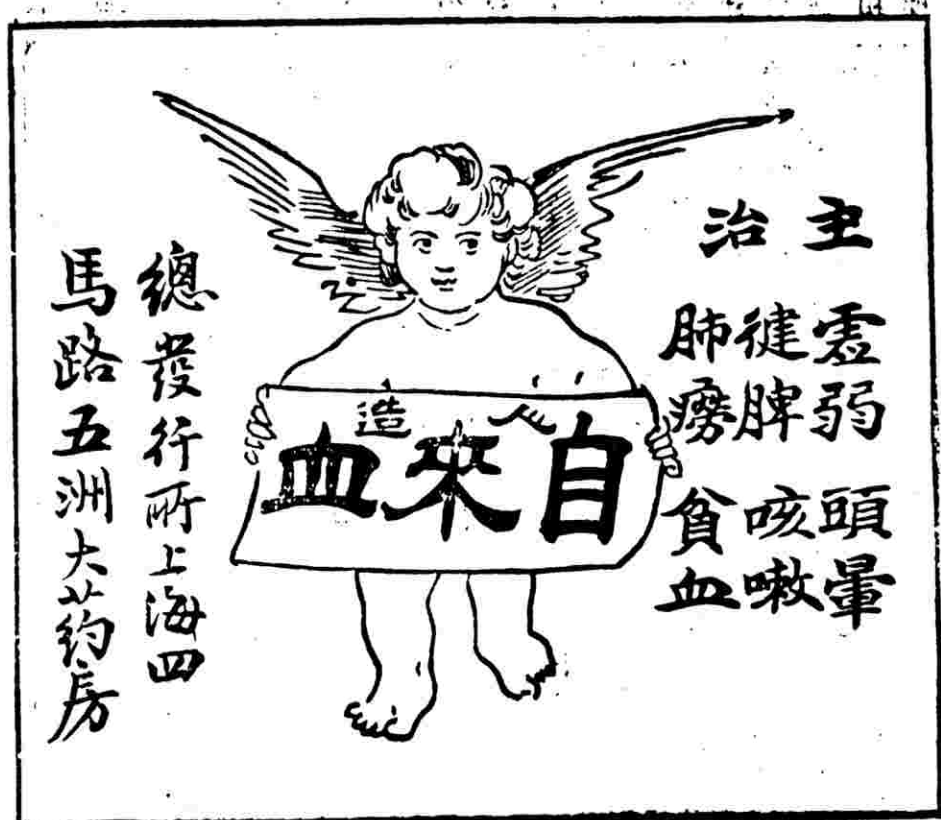 主治
虛弱 頭暈
健脾 咳嗽
肺癆 貧血
人造
自來血
總發行所上海四
馬路五洲大药房